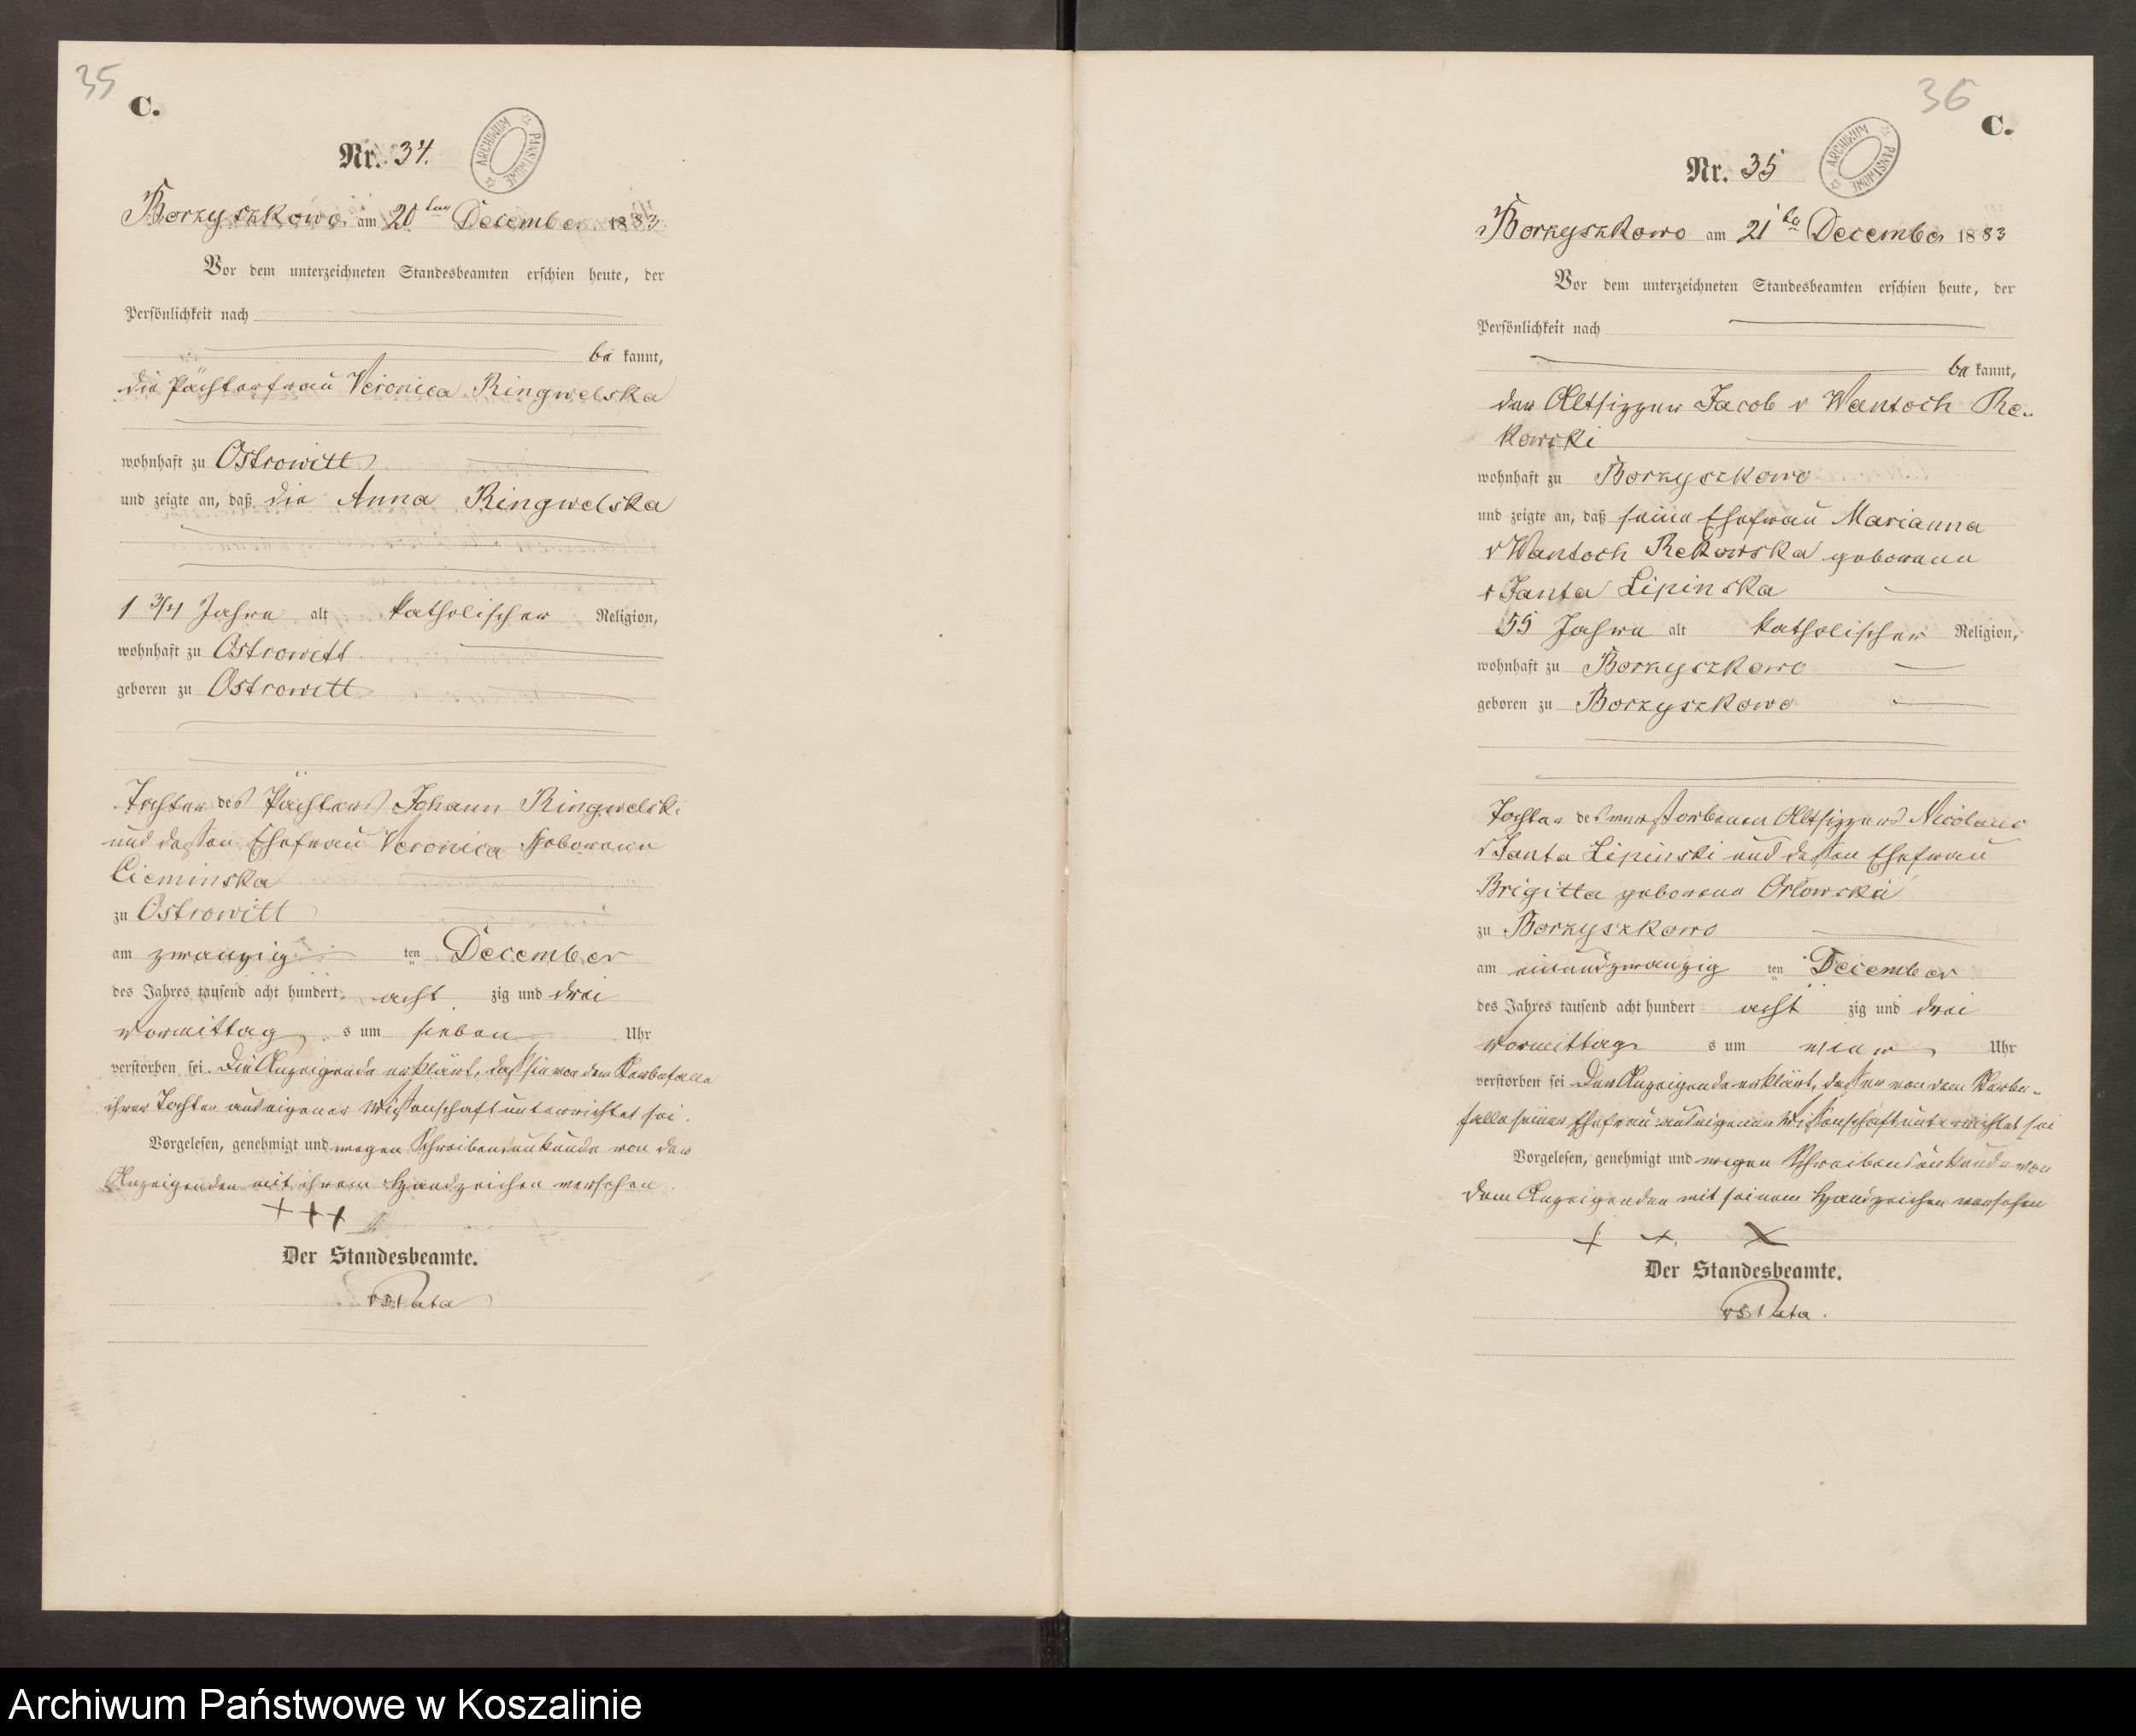 35
C.
Nr. 34.
ARCHIWUM PAŃSTWOWE
Borzyszkowo am 20ten December 1883
Vor dem unterzeichneten Standesbeamten erschien heute, der
Persönlichkeit nach
be kannt,
die Pächterfrau Veronica Ringwelska
wohnhaft zu Ostrowitt
und zeigte an, daß die Anna Ringwelska
1 3/4 Jahre alt katholischer Religion,
wohnhaft zu Ostrowitt
geboren zu Ostrowitt
Tochter des Pächters Johann Ringwelski
und dessen Ehefrau Veronica geborene
Cieminska
zu Ostrowitt
am zwanzig ten December
des Jahres tausend acht hundert acht zig und drei
vormittag s um sieben Uhr
verstorben sei. Die Anzeigende erklärt, daß sie von dem Sterbefalle
ihrer Tochter aus eigener Wissenschaft unterrichtet sei.
Vorgelesen, genehmigt und wegen Schreibensunkunde von der
Anzeigenden mit ihrem Handzeichen versehen.
+++
Der Standesbeamte.
36
C.
Nr. 35
ARCHIWUM PAŃSTWOWE
Borzyszkowo am 21ten December 1883
Vor dem unterzeichneten Standesbeamten erschien heute, der
Persönlichkeit nach
be kannt,
der Altsitzer Jacob v Wantoch Re-
kowski
wohnhaft zu Borzyszkowo
und zeigte an, daß seine Ehefrau Marianna
v Wantoch Rekowska geborene
v Janta Lipinska
55 Jahre alt katholischer Religion,
wohnhaft zu Borzyszkowo
geboren zu Borzyszkowo
Tochter des verstorbenen Altsitzers Nicolaus
v Janta Lipinski und dessen Ehefrau
Brigitta geborene Orlowska
zu Borzyszkowo
am einundzwanzig ten December
des Jahres tausend acht hundert acht zig und drei
vormittag s um vier Uhr
verstorben sei Der Anzeigende erklärt, daß er von dem Sterbe-
falle seiner Ehefrau aus eigener Wissenschaft unterrichtet sei
Vorgelesen, genehmigt und wegen Schreibensunkunde von
dem Anzeigenden mit seinem Handzeichen versehen
+ + X
Der Standesbeamte.
Archiwum Państwowe w Koszalinie